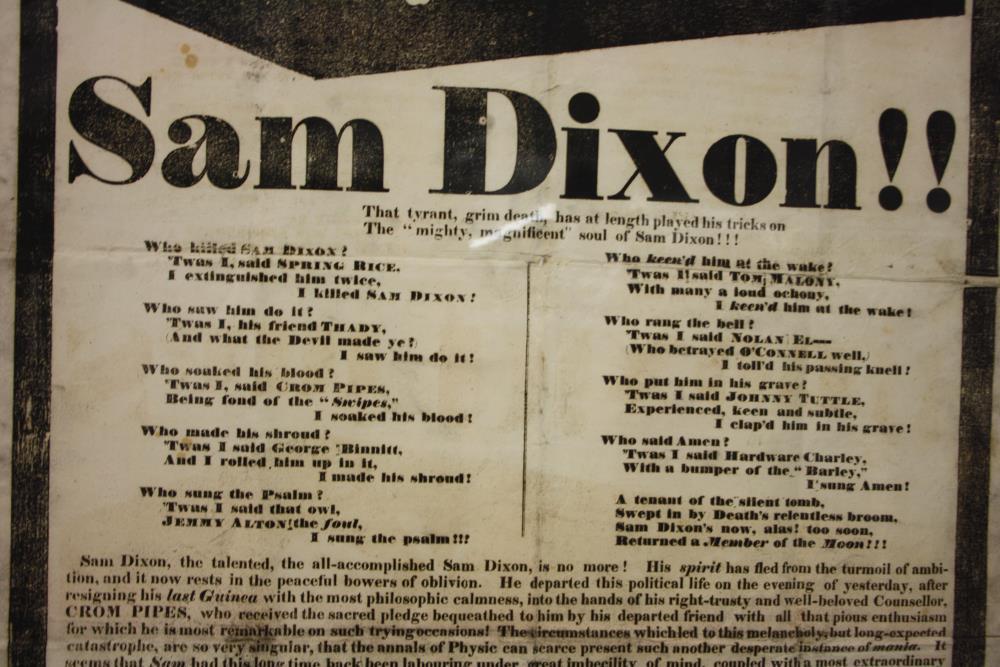 Sam Dixon!!
That tyrant, grim death, has at length played his tricks on
The "mighty, magnificent" soul of Sam Dixon!!!
Who killed SAM DIXON?
'Twas I, said SPRING RICE.
I extinguished him twice,
I killed SAM DIXON!
Who saw him do it?
'Twas I, his friend THADY,
(And what the Devil made ye?)
I saw him do it!
Who soaked his blood?
'Twas I, said CROM PIPES,
Being fond of the "Swipes,"
I soaked his blood!
Who made his shroud?
'Twas I said George Binnitt,
And I rolled him up in it,
I made his shroud!
Who sung the Psalm?
'Twas I said that owl,
JEMMY ALTON! the foul,
I sung the psalm!!!
Who keen'd him at the wake?
'Twas I! said TOM MALONY,
With many a loud ochony,
I keen'd him at the wake!
Who rang the bell?
'Twas I said NOLAN EL---
(Who betrayed O'CONNELL well,)
I toll'd his passing knell!
Who put him in his grave?
'Twas I said JOHNNY TUTTLE,
Experienced, keen and subtle,
I clap'd him in his grave!
Who said Amen?
'Twas I said Hardware Charley,
With a bumper of the "Barley,"
I sung Amen!
A tenant of the silent tomb,
Swept in by Death's relentless broom,
Sam Dixon's now, alas! too soon,
Returned a Member of the Moon!!!
Sam Dixon, the talented, the all-accomplished Sam Dixon, is no more! His spirit has fled from the turmoil of ambi-
tion, and it now rests in the peaceful bowers of oblivion. He departed this political life on the evening of yesterday, after
resigning his last Guinea with the most philosophic calmness, into the hands of his right-trusty and well-beloved Counsellor,
CROM PIPES, who received the sacred pledge bequeathed to him by his departed friend with all that pious enthusiasm
for which he is most remarkable on such trying occasions! The circumstances which led to this melancholy, but long-expected
catastrophe, are so very singular, that the annals of Physic can scarce present such another desperate instance of mania. It
seems that Sam had this long time back been labouring under great imbecility of mind, coupled with a most extraordinary